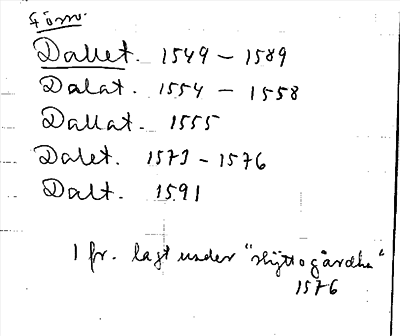 Förv.
Dallet. 1549 - 1589
Dalat. 1554 - 1558
Dallat. 1555
Dalet. 1573 - 1576
Dalt. 1591
1 fr. lagt under
1576